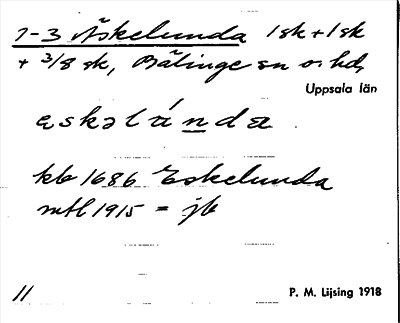 1-3 Äskelunda 1 sk + 1 sk
+ 3/8 sk, Bälinge sn o. hd,
Uppsala län
eskəlúnda
kb 1686 Eskelunda
mtl 1915 = jb
11
P. M. Lijsing 1918